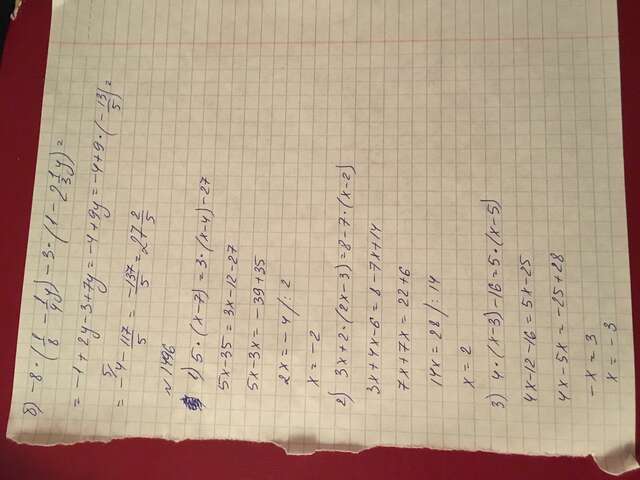 б) -8·(1/8 - 1/4y) - 3·(1 - 2 1/3y) =
= -1 + 2y - 3 + 7y = -4 + 9y = -4 + 9·(-13/5) =
= -4 - 117/5 = -137/5 = -27 2/5
№ 1496
1) 5·(x-7) = 3·(x-4) - 27
5x - 35 = 3x - 12 - 27
5x - 3x = -39 + 35
2x = -4 /: 2
x = -2
2) 3x + 2·(2x-3) = 8 - 7·(x-2)
3x + 4x - 6 = 8 - 7x + 14
7x + 7x = 22 + 6
14x = 28 /: 14
x = 2
3) 4·(x-3) - 16 = 5·(x-5)
4x - 12 - 16 = 5x - 25
4x - 5x = -25 + 28
-x = 3
x = -3